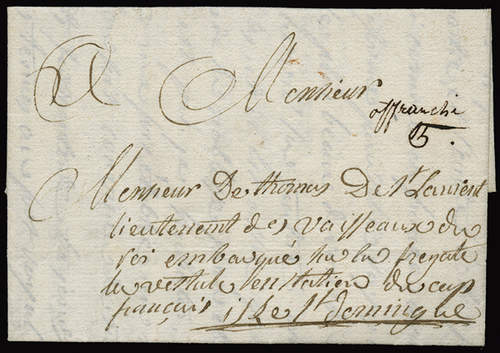 A Monsieur
affranchi
Monsieur De thomas De St Laurent
lieutenent des vaisseaux du
roi embarqué sur la fregate
la vestale en station du cap
français isle St domingue